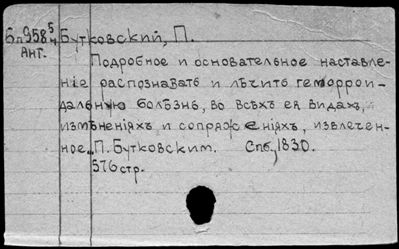 6п9585/4 Бутковский, П.
Ант.
Подробное и основательное наставле-
ніе распознавать и лѣчить геморрои-
дальную болѣзнь, во всѣхъ ея видахъ,
измѣненіяхъ и сопряженіяхъ, извлечен-
ное П. Бутковским. Спб, 1830.
576 стр.